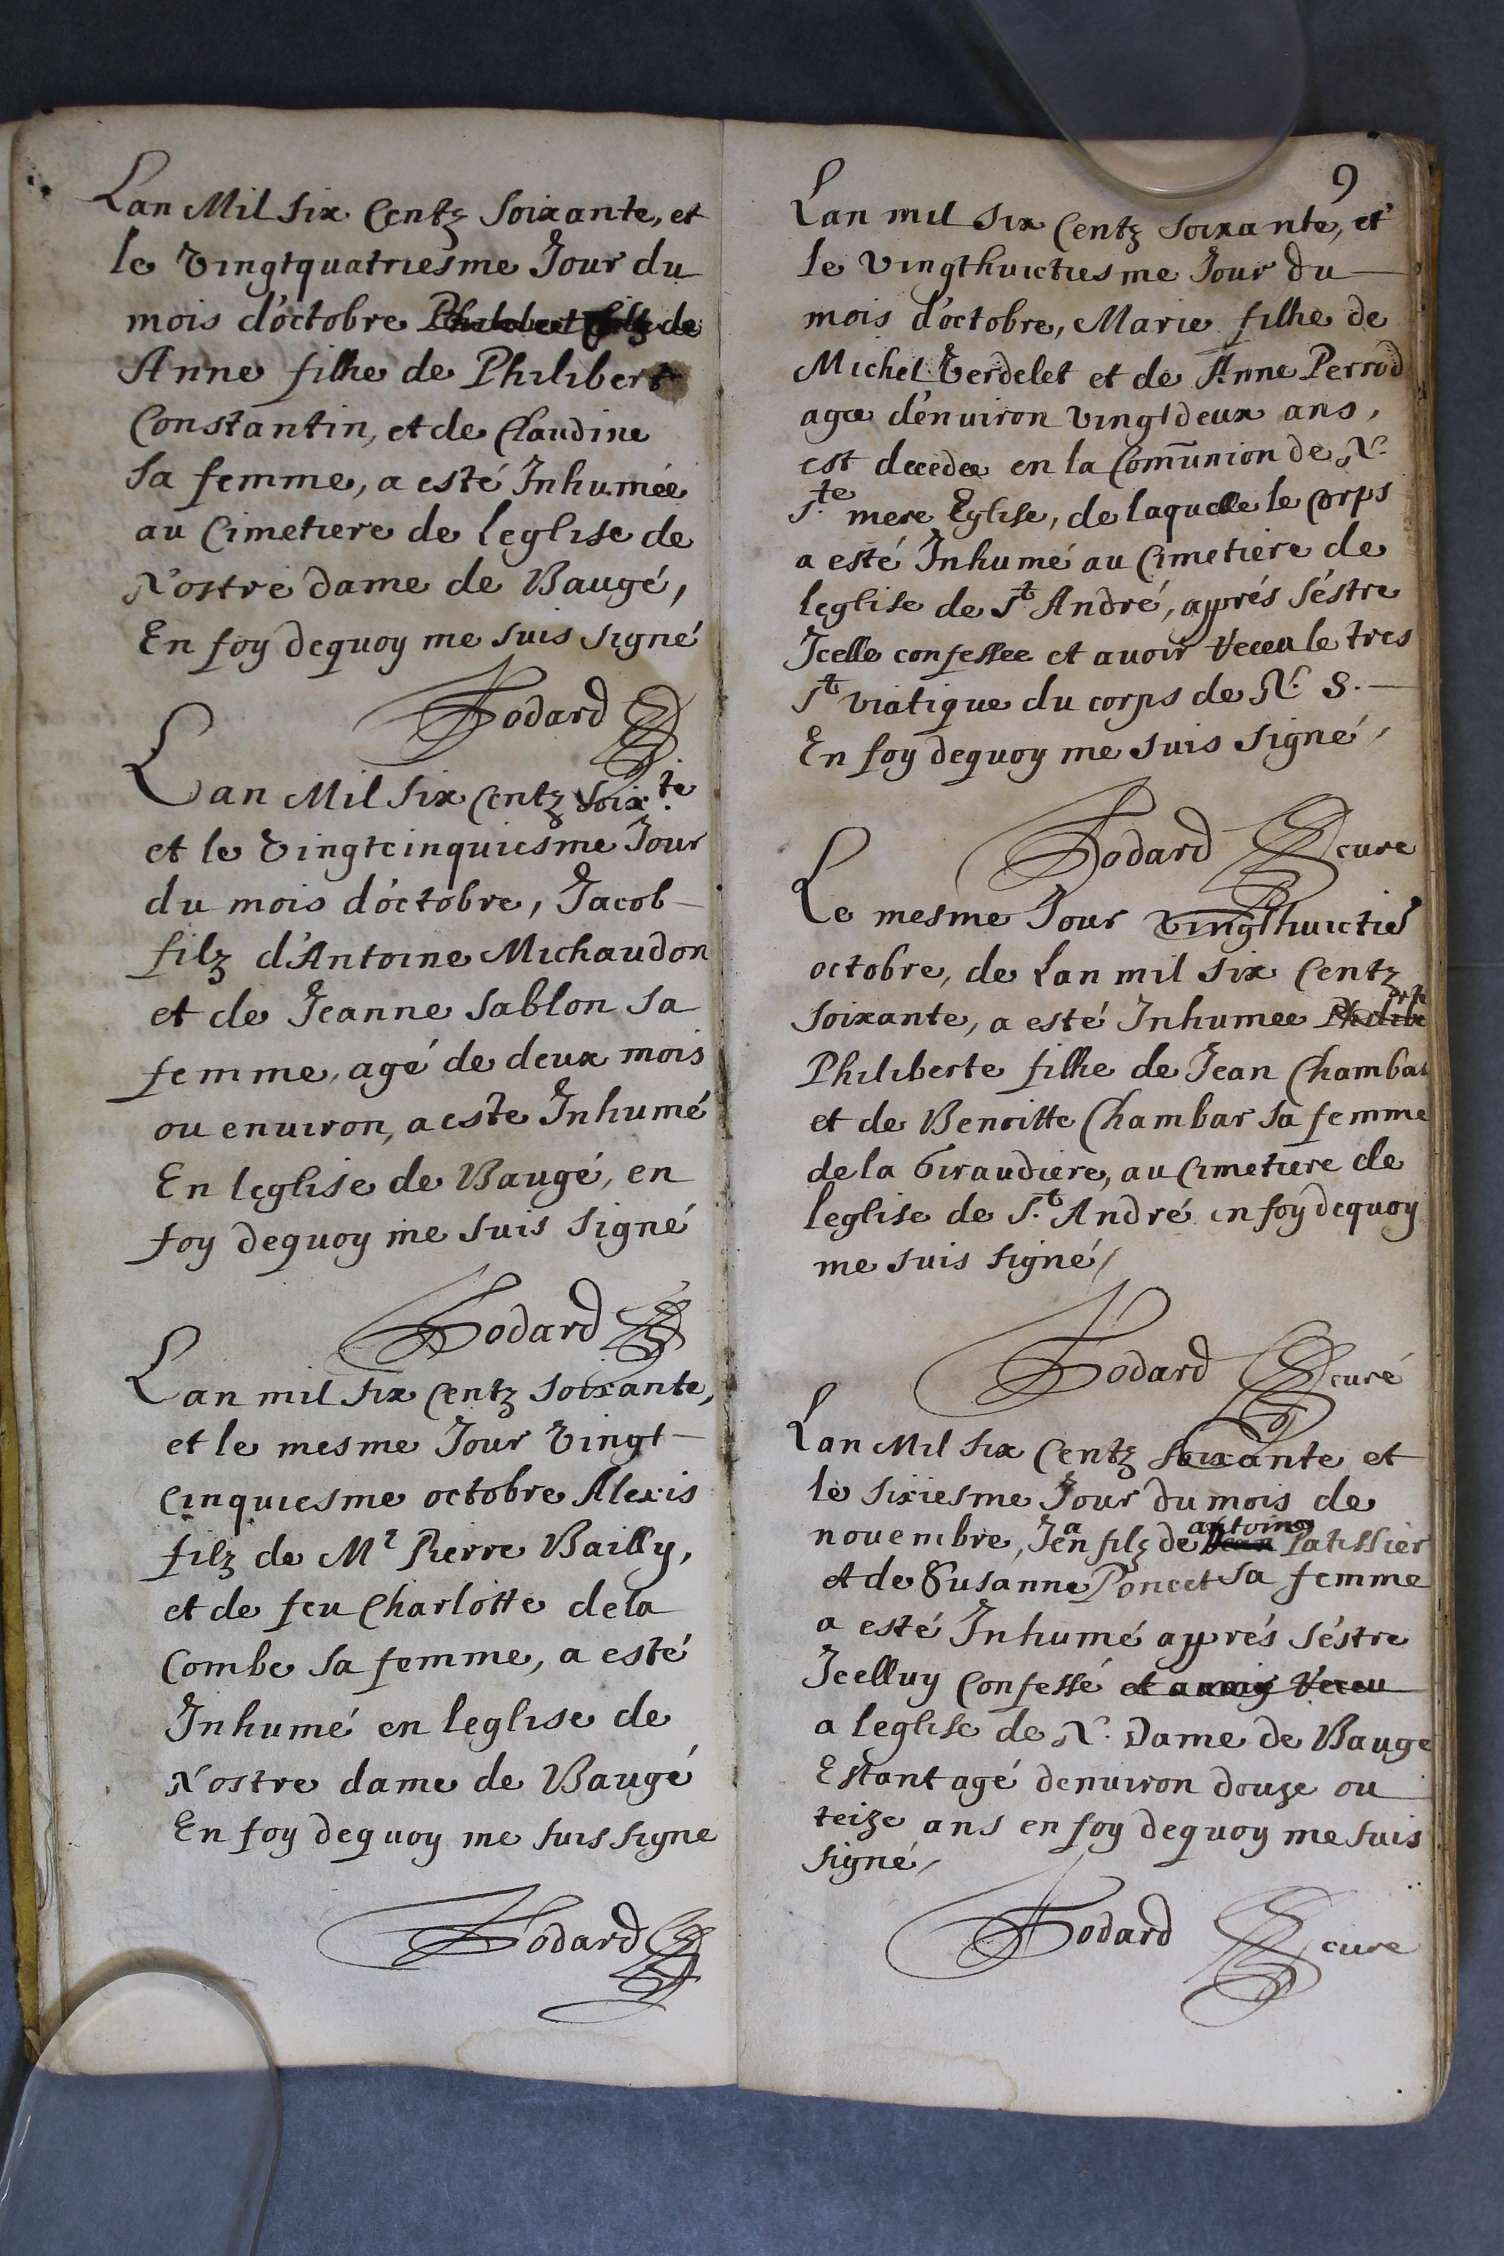 Lan Mil six Centz soixante, et
le vingtquatriesme Jour du
mois d'octobre Philibert filz de
Anne filhe de Philibert
Constantin, et de Claudine
sa femme, a esté Inhumée
au Cimetiere de leglise de
Nostre dame de Baugé,
En foy dequoy me suis signé
Lan Mil six Centz soix.te
et le vingtcinquiesme Jour
du mois d'octobre, Jacob
filz d'Antoine Michaudon
et de Jeanne Sablon sa
femme, agé de deux mois
ou enuiron, a este Inhumé
En leglise de Baugé, en
foy dequoy me suis signé
Lan mil six Centz soixante,
et le mesme Jour vingt
cinquiesme octobre Alexis
filz de Mr Pierre Bailly,
et de feu Charlotte dela
Combe sa femme, a esté
Inhumé en leglise de
Nostre dame de Baugé
En foy dequoy me suis signe
9
Lan mil six Centz soixante, et
le vingthuictiesme Jour du
mois d'octobre, Marie filhe de
Michel Verdelet et de Anne Perrod
agee d'enuiron vingtdeux ans,
est decedee en la Com̃union de N.
S.te mere Eglise, de laquelle le Corps
a esté Inhumé au Cimetiere de
leglise de St André, apprés s'éstre
Icelle confessee et auoir receu le tres
St viatique du corps de N. S.
En foy dequoy me suis signé
cure
Le mesme Jour vingthuicties
octobre, de Lan mil six Centz
soixante, a esté Inhumee Philiberte
Philiberte filhe de Jean Chambar
et de Benoitte Chambar sa femme
de la Giraudiere, au Cimetiere de
leglise de S.t André en foy dequoy
me suis signé
curé
Lan Mil six Centz soixante et
le sixiesme Jour du mois de
nouembre, Jean filz de Jean antoine Patissier
et de Susanne Poncet sa femme
a esté Inhumé apprés s'éstre
Icelluy Confessé et auoir receu
a leglise de N. Dame de Bauge
Estant agé denuiron douze ou
treize ans en foy dequoy me suis
signé
cure